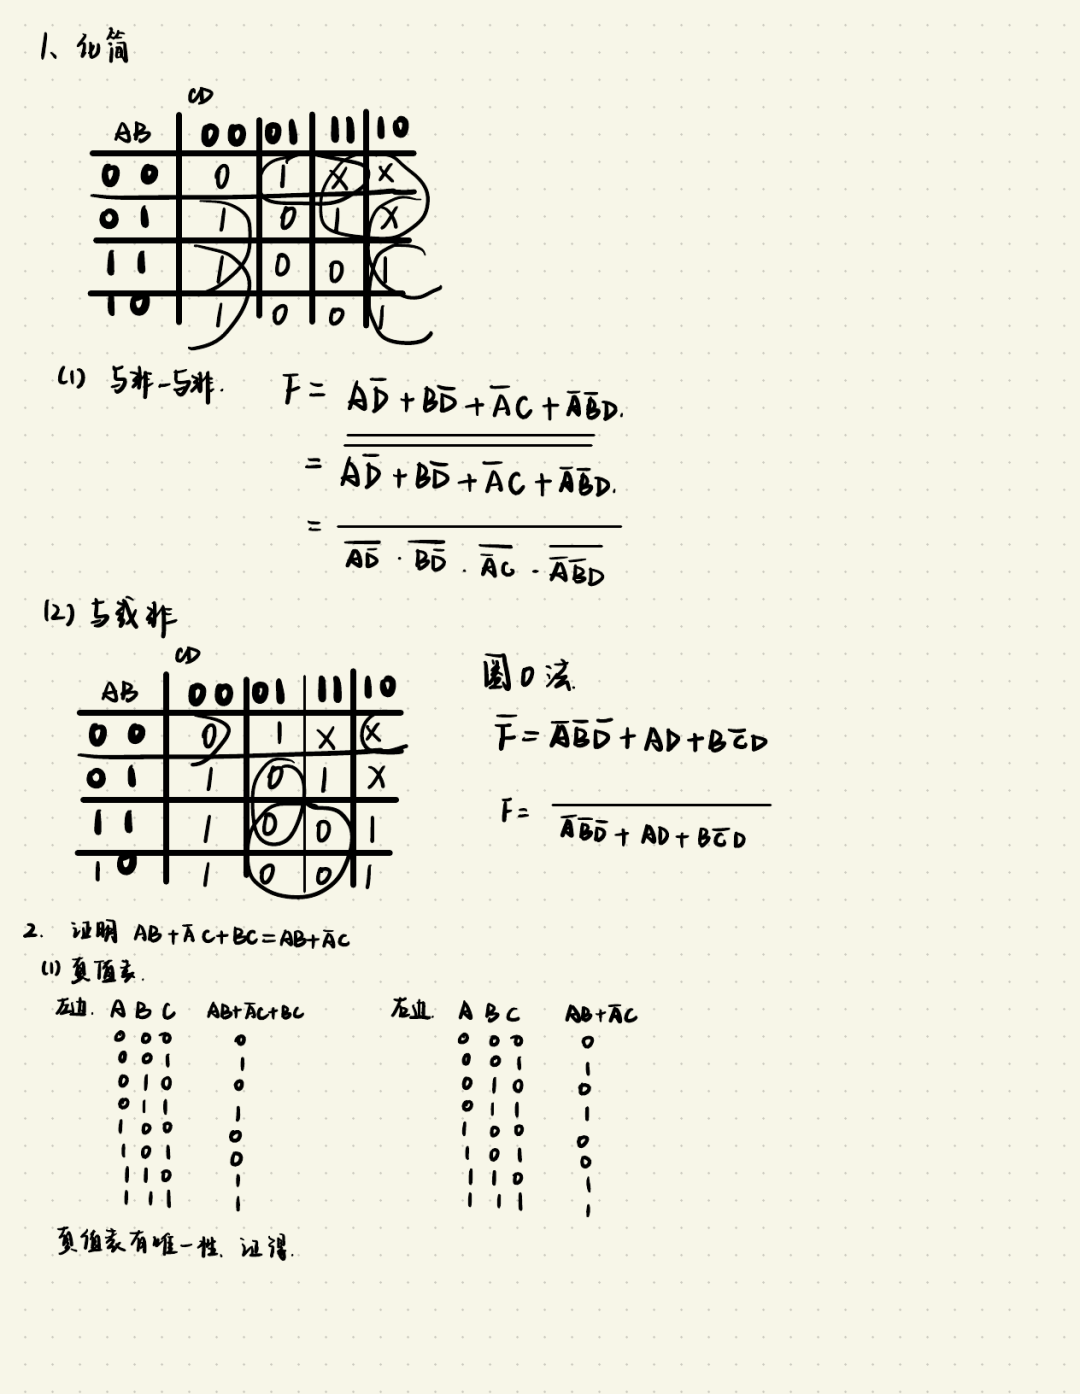 1、化简
CD
AB 00 01 11 10
00 0 1 X X
01 1 0 1 X
11 1 0 0 1
10 1 0 0 1
(1) 与非-与非. F = AD̅ + BD̅ + A̅C + A̅B̅D.
= A̅D̅̅ ̅+̅ ̅B̅D̅̅ ̅+̅ ̅A̅̅C̅ ̅+̅ ̅A̅̅B̅̅D̅.
= \overline{\overline{AD̅} · \overline{BD̅} · \overline{A̅C} · \overline{A̅B̅D}}
(2) 与或非
CD
AB 00 01 11 10
00 0 1 X X
01 1 0 1 X
11 1 0 0 1
10 1 0 0 1
圈0法.
F̅ = A̅B̅D̅ + AD + BC̅D
F = \overline{A̅B̅D̅ + AD + BC̅D}
2. 证明 AB + A̅C + BC = AB + A̅C
(1) 真值表.
左边. A B C AB+A̅C+BC
0 0 0 0
0 0 1 1
0 1 0 0
0 1 1 1
1 0 0 0
1 0 1 0
1 1 0 1
1 1 1 1
右边. A B C AB+A̅C
0 0 0 0
0 0 1 1
0 1 0 0
0 1 1 1
1 0 0 0
1 0 1 0
1 1 0 1
1 1 1 1
真值表有唯一性. 证得.